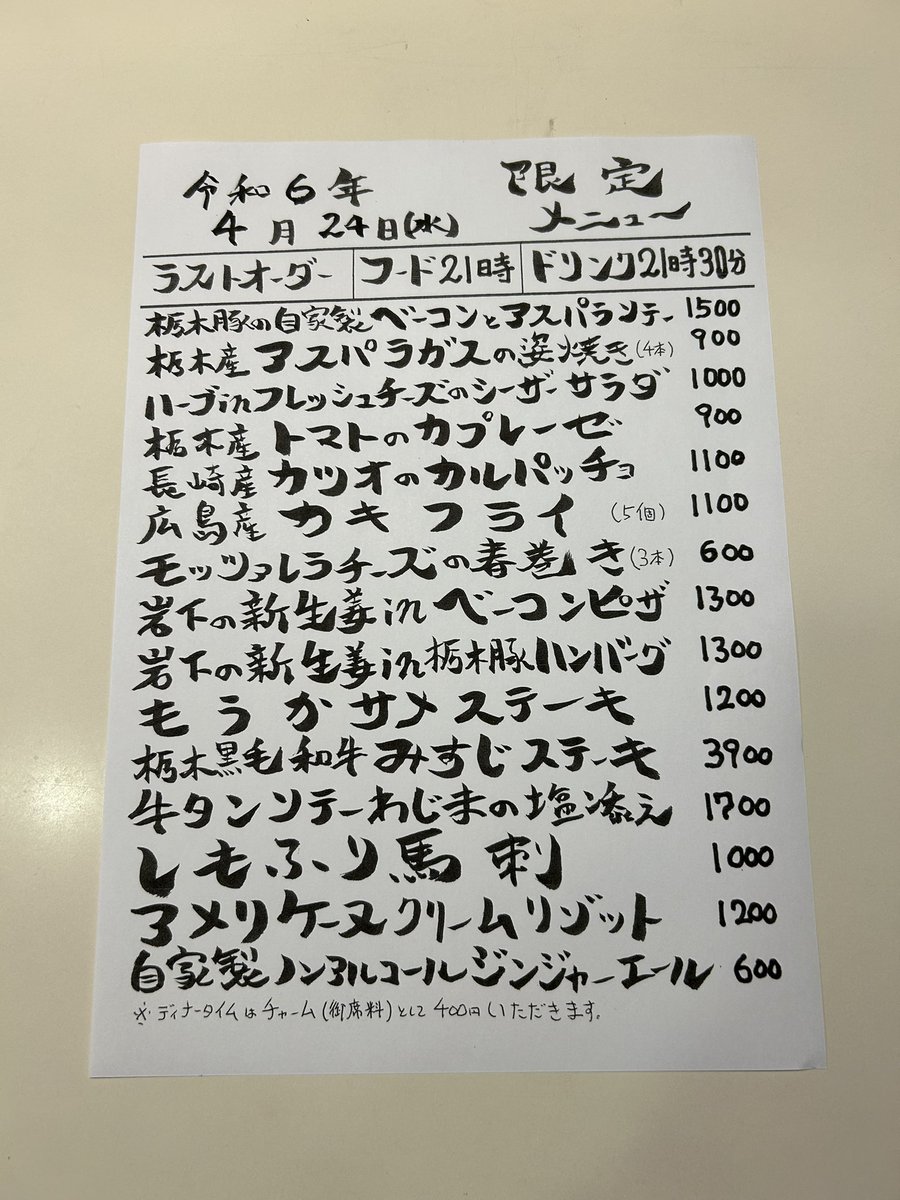 令和6年 限定
4月24日(水) メニュー
ラストオーダー フード21時 ドリンク21時30分
栃木豚の自家製ベーコンとアスパラソテー 1500
栃木産アスパラガスの姿焼き(4本) 900
ハーブinフレッシュチーズのシーザーサラダ 1000
栃木産トマトのカプレーゼ 900
長崎産カツオのカルパッチョ 1100
広島産カキフライ(5個) 1100
モッツァレラチーズの春巻き(3本) 600
岩下の新生姜inベーコンピザ 1300
岩下の新生姜in栃木豚ハンバーグ 1300
もうかサメステーキ 1200
栃木黒毛和牛みすじステーキ 3900
牛タンソテーわじまの塩添え 1700
しもふり馬刺 1000
アメリケーヌクリームリゾット 1200
自家製ノンアルコールジンジャーエール 600
※ディナータイムはチャーム(御席料)として400円いただきます。